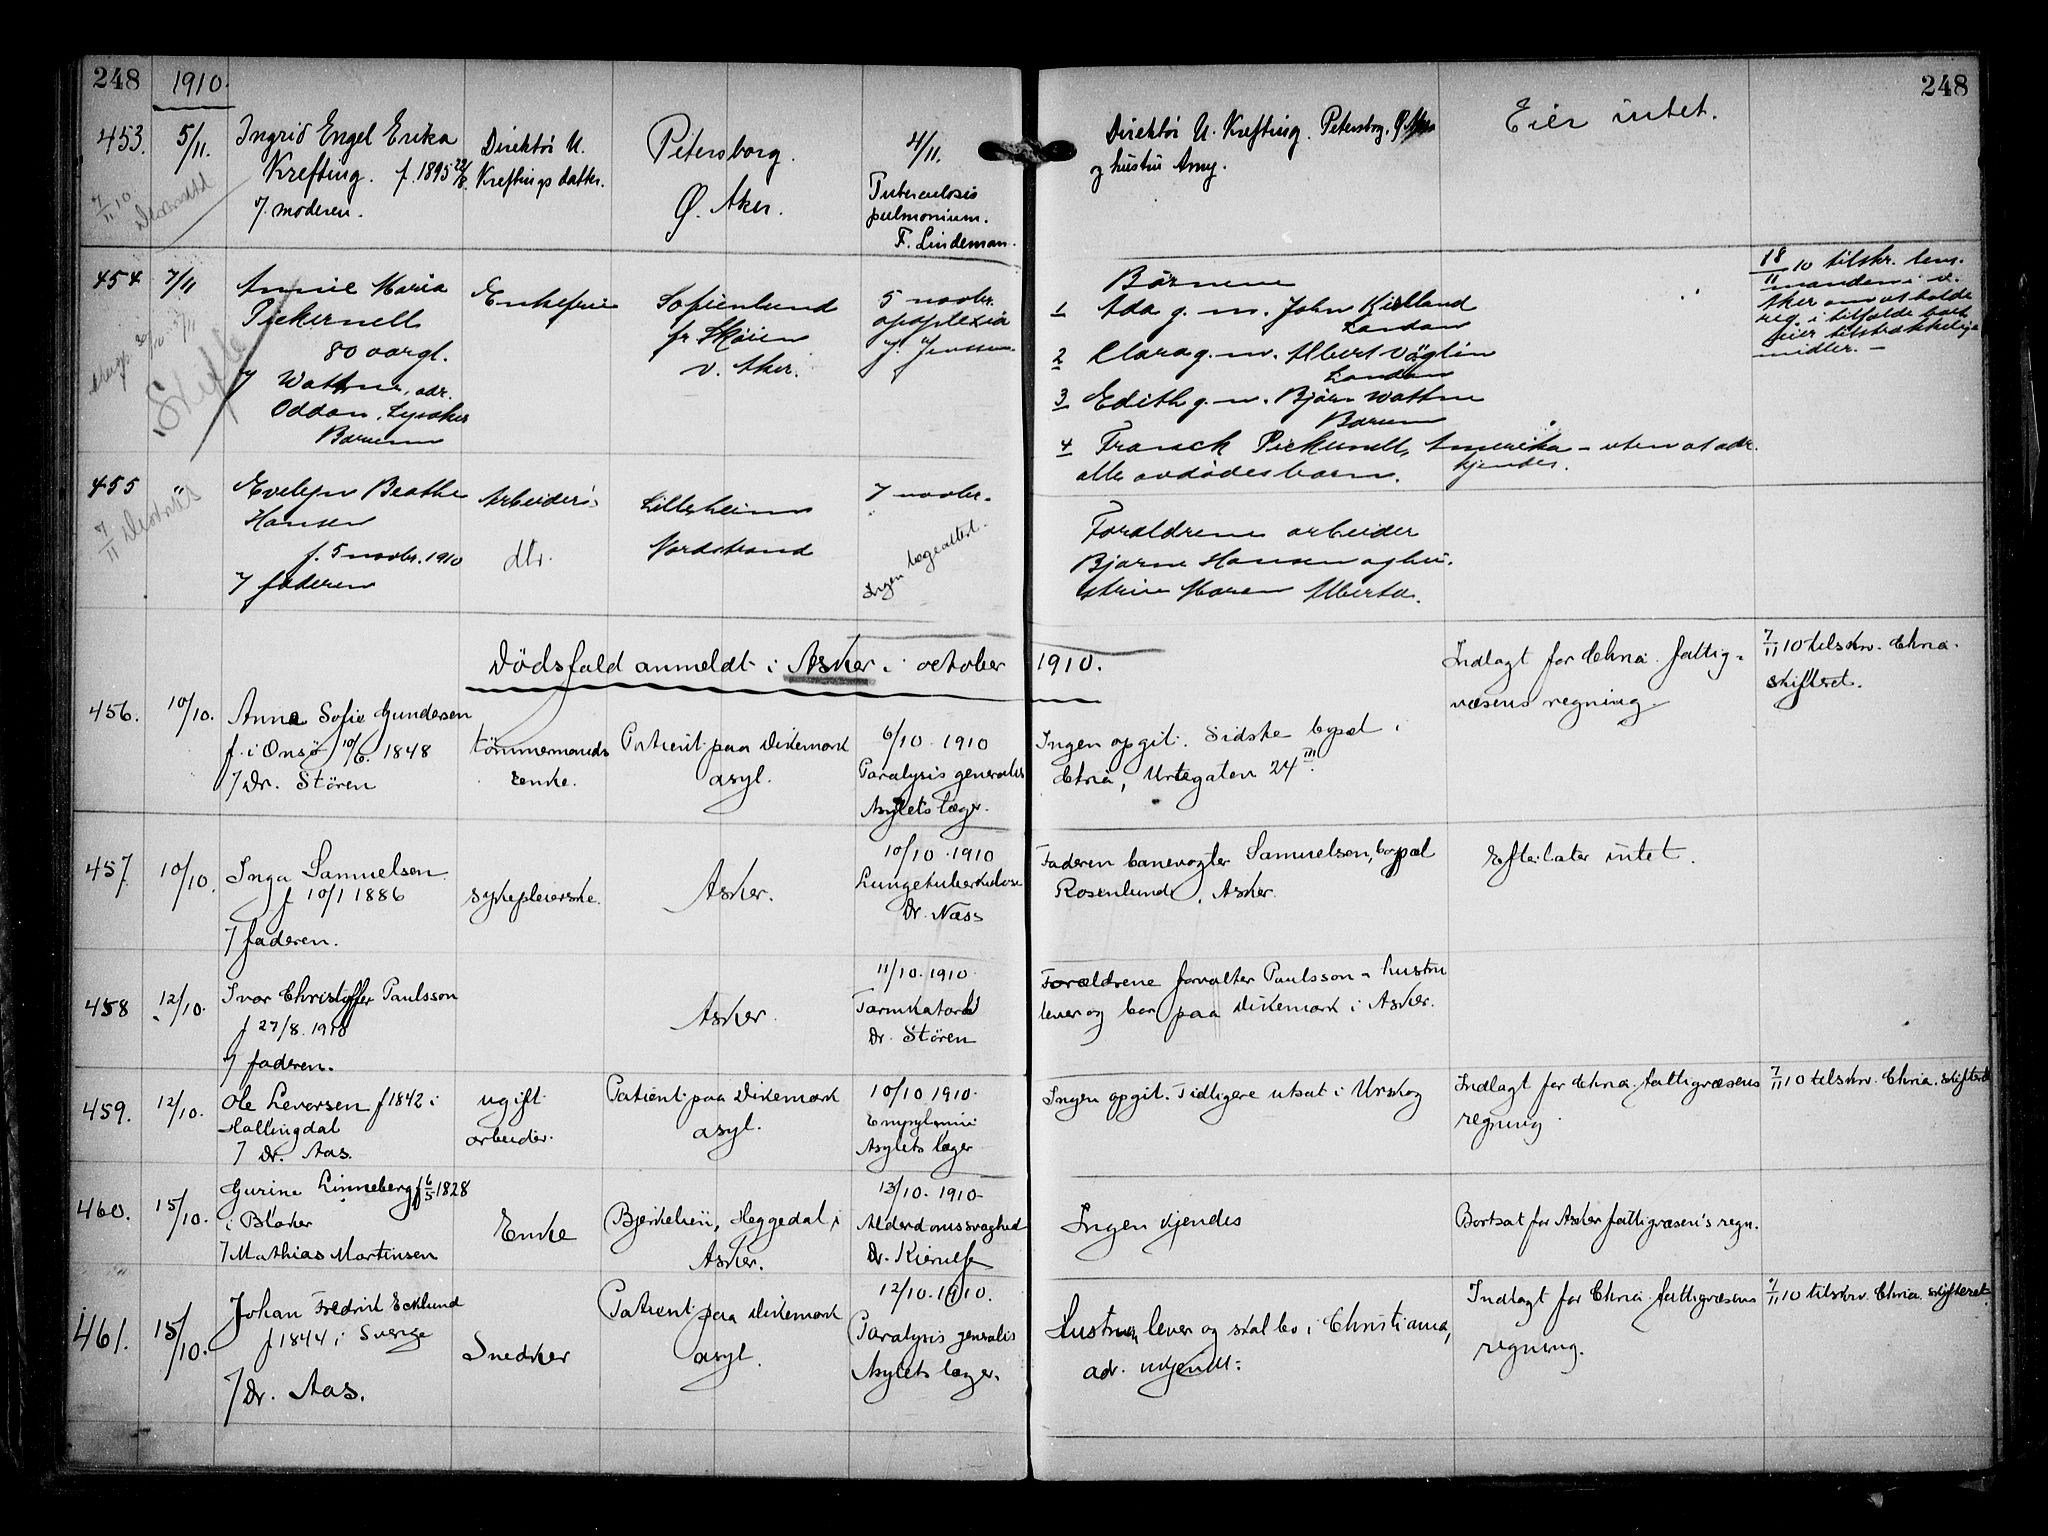 248
1910.
248
453.
5/11.
Ingrid Engel Erika
Krefting. f. 1895 22/8
7. moderen.
Direktør U.
Kreftings datter.
Petersborg.
Ø. Aker.
4/11.
Tuberculosis
pulmonium.
F. Lindeman.
Direktør U. Krefting. Petersborg, Ø. Aker
og hustru Anny.
Eier intet.
7/11 10.
454
7/11
Annie Maria
Pickernell
80 aar gl.
7 Wattne, adr.
Oddan, Lysaker
Bærum
Skifte
Enkefrue
Sofienlund
pr Skøien
v. Aker.
5 novbr.
apoplexia
J. Jenssen
Børnene
1 Ada g. m. John Kielland
London
2 Clara g. m. Albert Våglin
London
3 Edith g. m. Bjørn Wattne
Bærum
4 Franck Pickernell, Amerika – uten at adr.
kjendes.
alle avdødes barn.
18/11 10 tilskr. lens-
manden i v.
Aker om at holde
reg. i tilfælde boet
eier tilstrækkelige
midler. –
455
"
Evelyn Beathe
Hansen
f. 5 novbr. 1910
7 faderen
7/11
Arbeider-
dtr.
Lilleheim
Nordstrand
7 novbr.
Ingen lægeattest.
Forældrene arbeider
Bjarne Hansen og hu-
strue Maren Alberta.
Dödsfald anmeldt i Asker i october 1910.
456.
10/10.
Anna Sofie Gundersen
f. i Onsø 10/6. 1848
7 Dr. Stören
tömmermands
enke.
Patient paa Dikemark
asyl.
6/10 1910
Paralysis generalis
Asylets læger.
Ingen opgit. Sidste bopæl i
Chria, Urtegaten 24 III.
Indlagt for Chria. fattig-
væsens regning.
7/11 10 tilskr. Chria.
skifteret.
457
10/10.
Inga Samuelsen
f 10/1 1886
7 faderen.
sykepleierske.
Asker.
10/10 1910
Lungetuberkulose
Dr. Næss
Faderen banevogter Samuelsen, bopæl
Rosenlund, Asker.
Efterlater intet.
458
12/10.
Ivar Christoffer Paulsson
f 27/8. 1910
7 faderen.
Asker.
11/10. 1910
Tarmkatarrh
Dr. Stören
Forældrene forvalter Paulsson & hustru
lever og bor paa Dikemark i Asker.
459.
12/10.
Ole Levorsen f 1842 i
Hallingdal
7 Dr. Aas.
ugift
arbeider.
Patient paa Dikemark
asyl.
10/10 1910.
Asylets læger
Ingen opgit. Tidligere utsat i Urskog
Indlagt for Chria. fattigvæsens
regning
7/11 10 tilskr. Chria. skifteret
460.
15/10.
Gurine Linneberg f 6/5 1828
i Blaker
7 Mathias Martinsen
Enke
Bjerkelien, Heggedal i
Asker.
13/10. 1910
Alderdomssvaghed
Dr. Kierulf
Ingen kjendes
Bortsat for Asker fattigvæsen's regn.
461.
15/10.
Johan Fredrik Ecklund
f 1844 i Sverige
7 Dr. Aas.
Snedker
Patient paa Dikemark
asyl.
12/10. 1910.
Paralysis generalis
Asylets læger.
Hustruen lever og skal bo i Christiania,
adr. ukjendt.
Indlagt for Chria. fattigvæsens
regning.
7/11 10 tilskr. Chria. skifteret